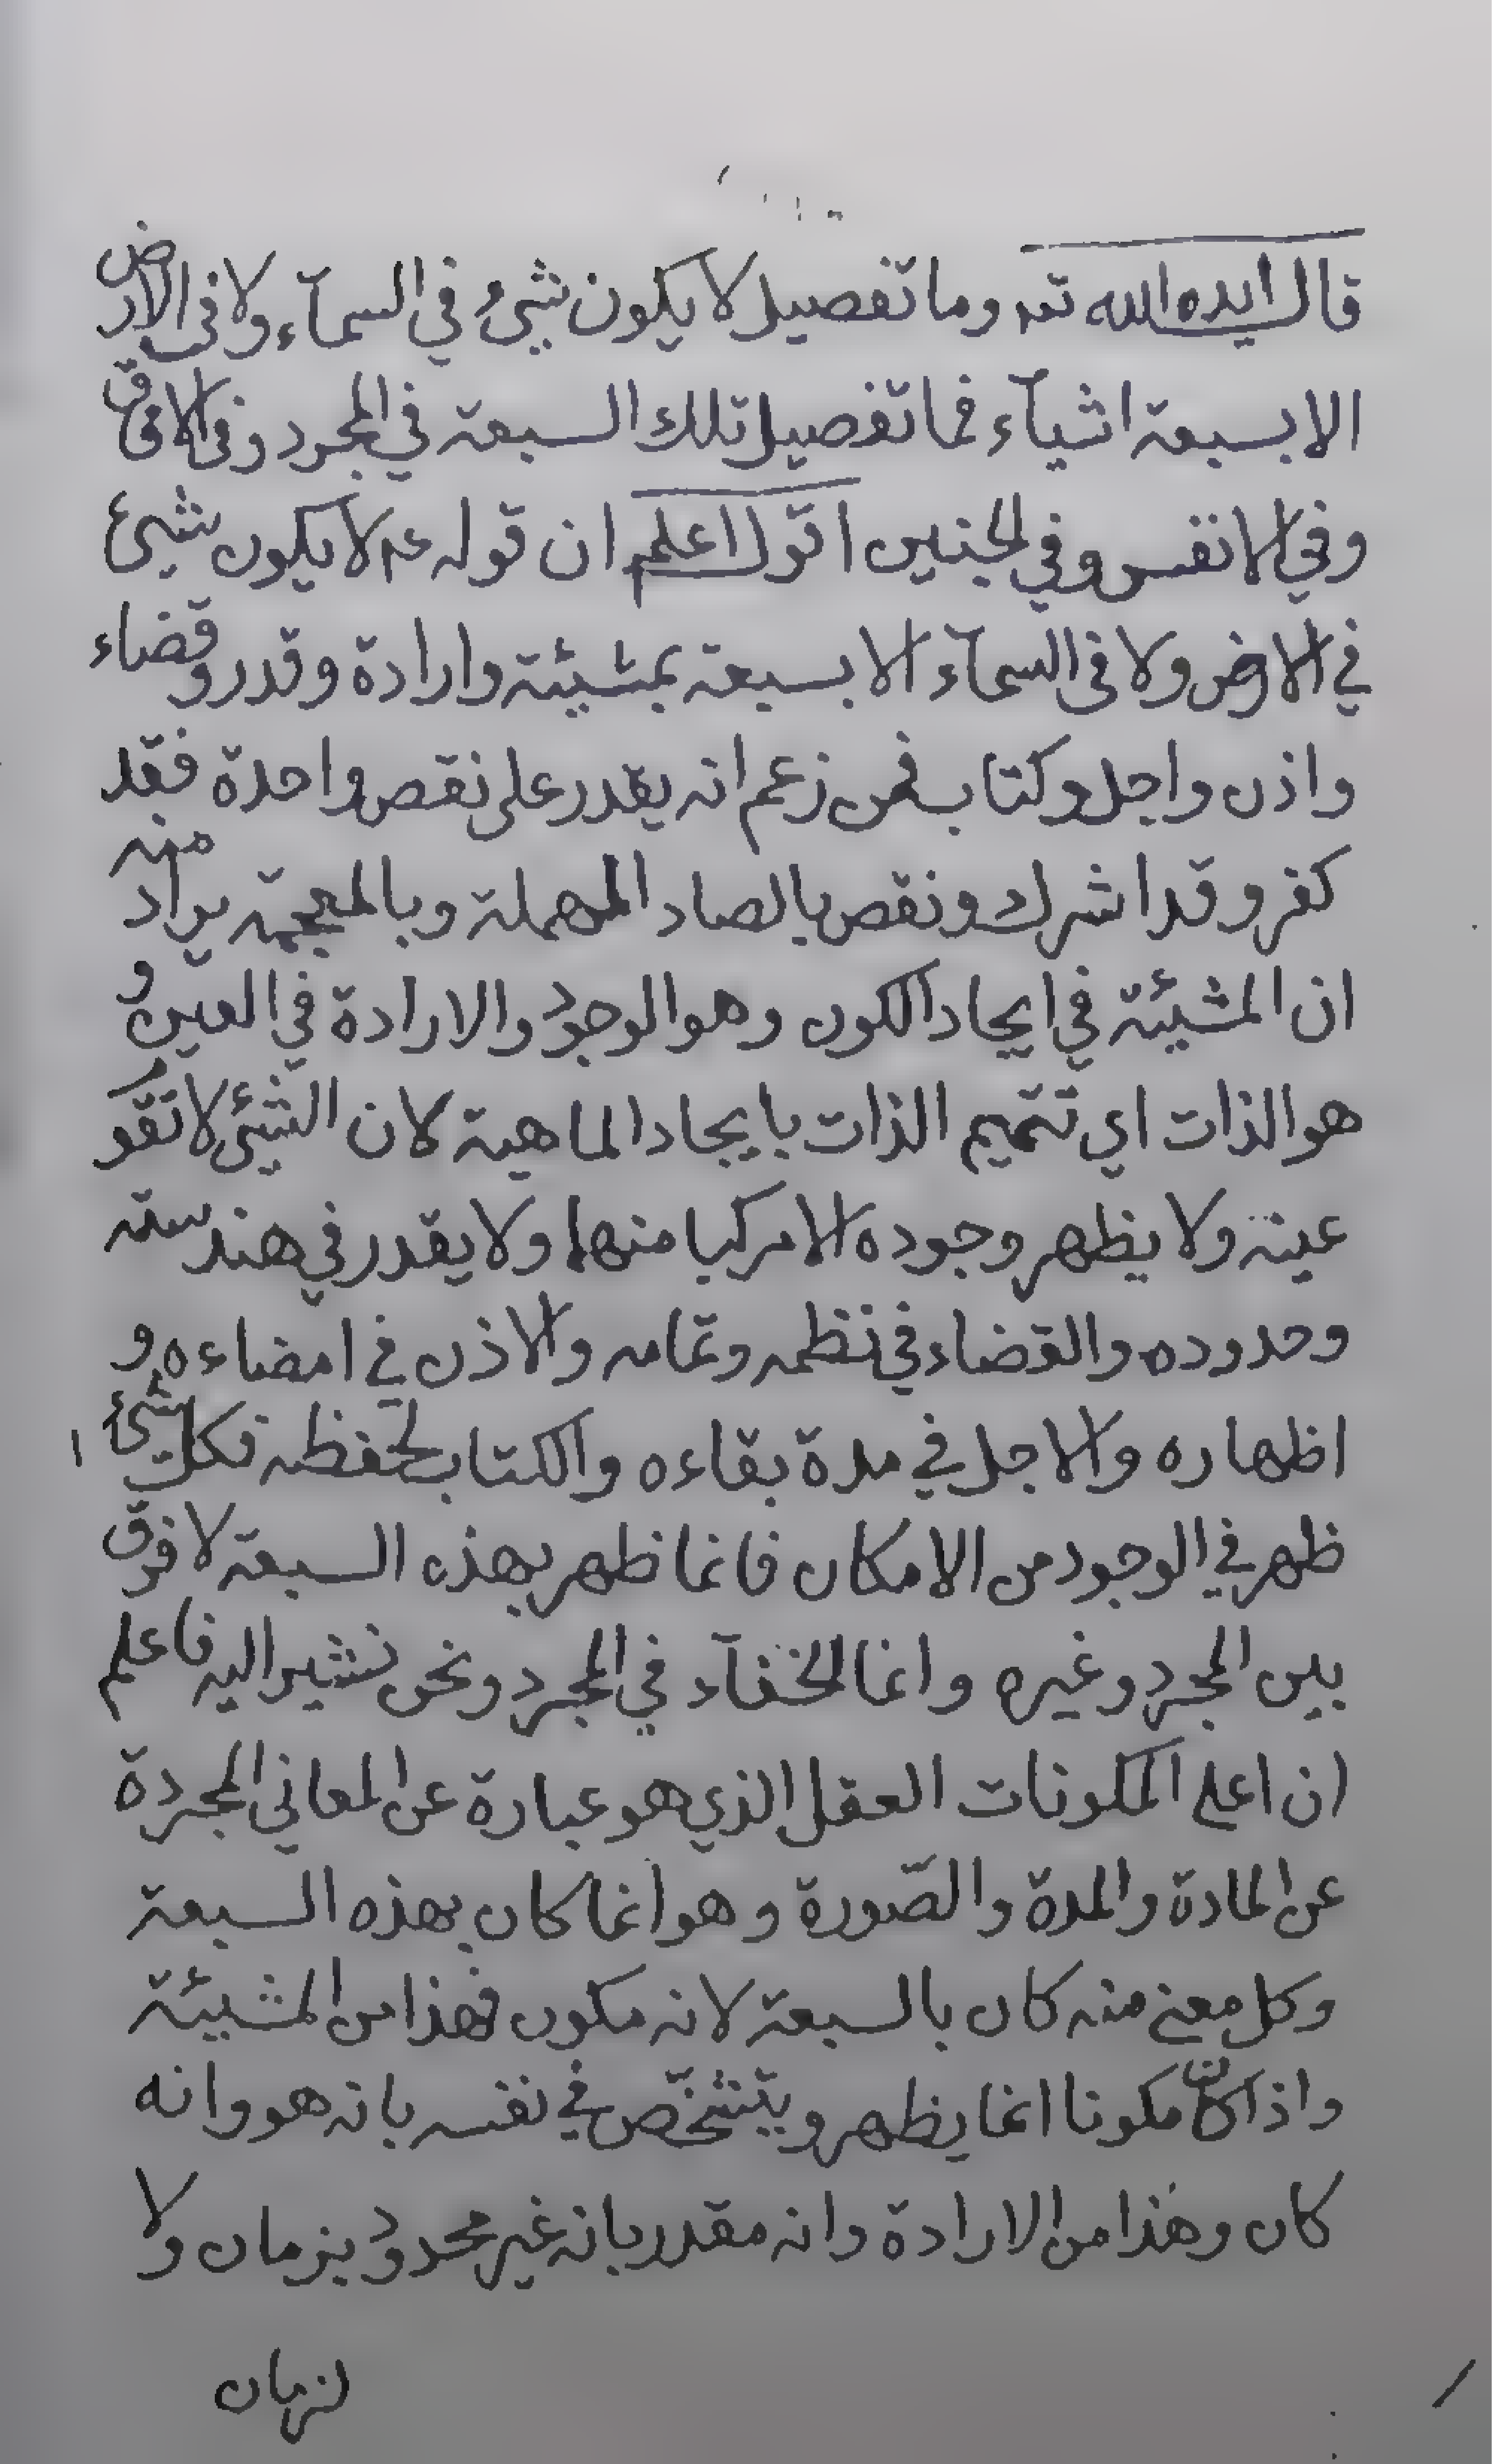 قال ايده الله تعه وما تفصيل لا يكون شيئ في السمآء ولا فى الارض
الا بسبعة اشيآء فما تفصيل تلك السبعة في المجرد وفى الافاق
وفي الانفس وفي الجنين اقول اعلم ان قوله عم لا يكون شيئ
في الارض ولا فى السمآء الا بسبعة بمشيئة وارادة وقدر وقضاء
واذن واجل وكتاب فمن زعم انه يقدر على نقص واحدة فقد
كفر وقد اشرك ونقص بالصاد المهملة وبالمعجمة يراد منه
ان المشيئة في ايجاد الكون وهو الوجود والارادة في العين و
هو الذات اي تتميم الذات بايجاد الماهية لان الشيئ لا تقو
عينه ولا يظهر وجوده الا مركبا منهما ولا يقدر في هندسته
وحدوده والقضاء في نظمه وتمامه والاذن في امضاءه و
اظهاره والاجل في مدة بقاءه والكتاب لحفظه فكل شيئ
ظهر في الوجود من الامكان فانما ظهر بهذه السبعة لا فرق
بين المجرد وغيره وانما الخفآء في المجرد ونحن نشير اليه فاعلم
ان اعلى المكونات العقل الذي هو عبارة عن المعاني المجردة
عن المادة والمدة والصّورة وهو انما كان بهذه السبعة
وكل معنى منه كان بالسبعة لانه مكون فهذا من المشيئة
واذا كان مكونا انما يظهر ويتشخّص في نفسه بانه هو وانه
كان وهذا من الارادة وانه مقدر بانه غير محدود بزمان ولا